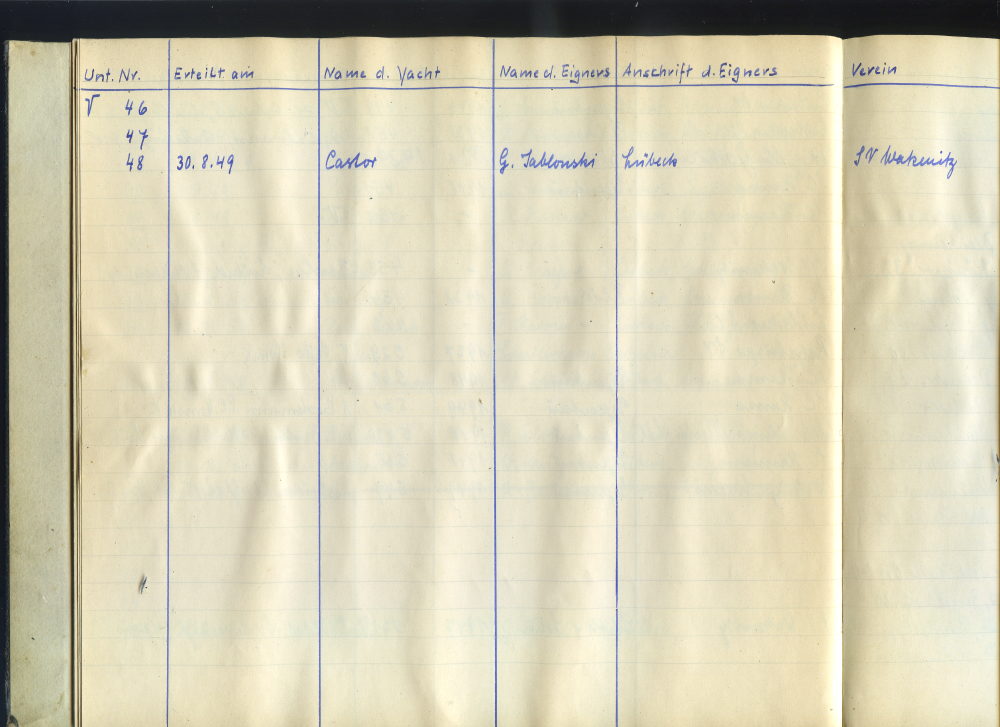 Unt. Nr. Erteilt am Name d. Yacht Name d. Eigners Anschrift d. Eigners Verein
V 46
47
48 30.8.49 Castor G. Jablonski Lübeck SV Wakenitz